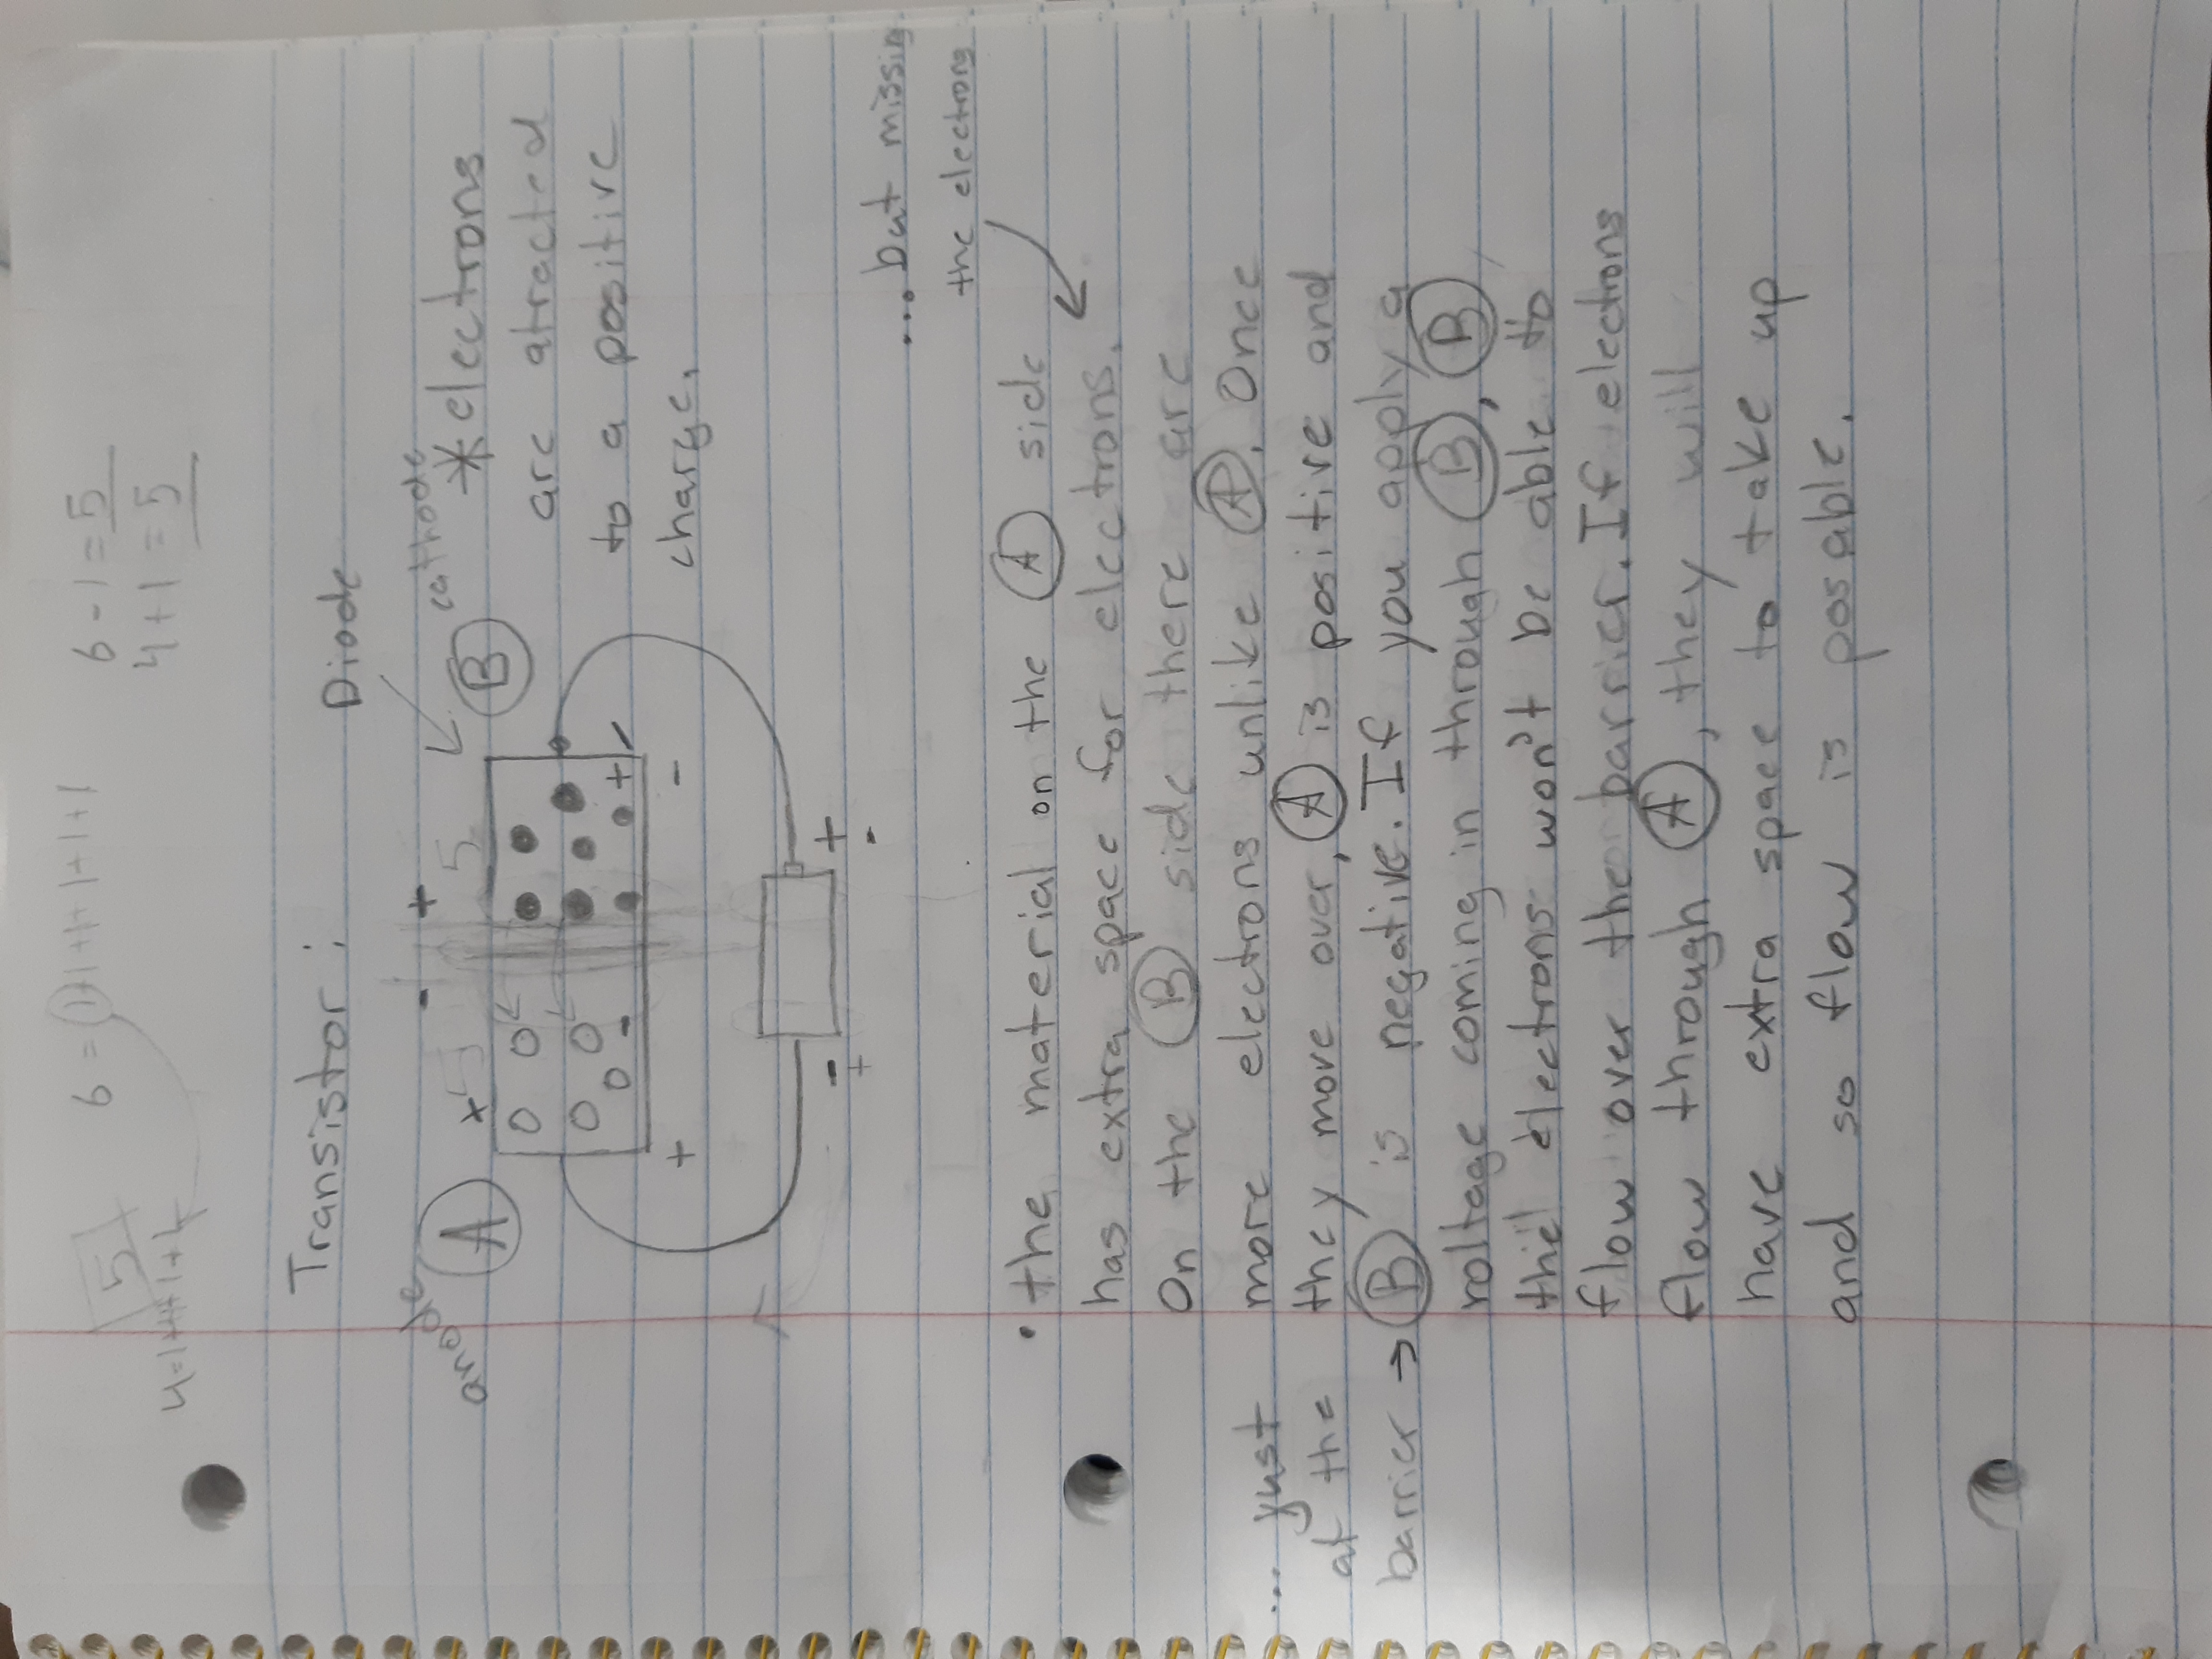 6 = 1+1+1+1+1+1
6 - 1 = 5
5
4 + 1 = 5
Transistor :
Diode
anode
A
- +
B
cathode
* electrons
5 5
are atracted
to a positive
- + -
+ -
charge.
- +
+ -
... but missing
the electrons
• the material on the A side
has extra space for electrons.
On the B side there are
more electrons unlike A. Once
... just
at the
barrier →
they move over, A is positive and
B is negative. If you apply a
voltage coming in through B, B
the electrons won't be able to
flow over the barrier. If electrons
flow through A, they will
have extra space to take up
and so flow is posable.